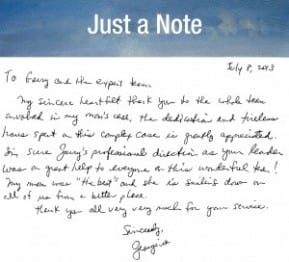 Just a Note
July 8, 2013
To Gerry and the expert team.
My sincere heartfelt thank you to the whole team
involved in my mom's case, the dedication and tireless
hours spent on this complex case is greatly appreciated.
I'm sure Gerry's professional direction as your leader
was a great help to everyone on this wonderful team!
My mom was "the best" and she is smiling down on
all of us from a better place.
Thank you all very very much for your service.
Sincerely,